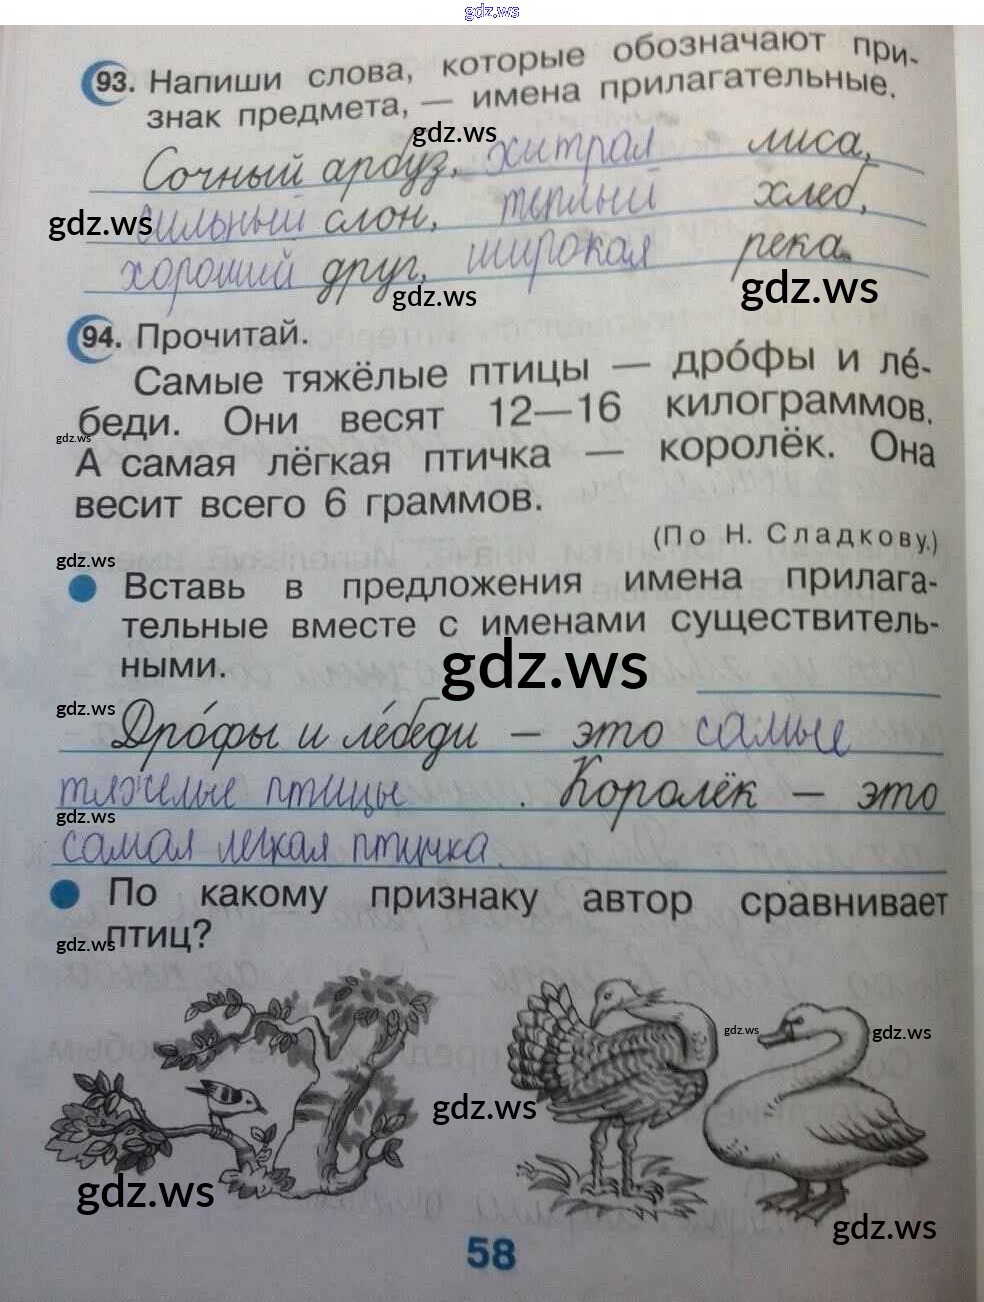 gdz.ws
93. Напиши слова, которые обозначают при-
знак предмета, — имена прилагательные.
gdz.ws
Сочный арбуз, хитрая лиса,
gdz.ws
сильный слон, теплый хлеб,
хороший друг, широкая река.
gdz.ws
gdz.ws
94. Прочитай.
Самые тяжёлые птицы — дро́фы и ле́-
беди. Они весят 12—16 килограммов.
gdz.ws
А самая лёгкая птичка — королёк. Она
весит всего 6 граммов.
(По Н. Сладкову.)
gdz.ws
Вставь в предложения имена прилага-
тельные вместе с именами существитель-
ными.
gdz.ws
gdz.ws
Дро́фы и ле́беди — это самые
тяжелые птицы. Королёк — это
gdz.ws
самая легкая птичка.
По какому признаку автор сравнивает
птиц?
gdz.ws
gdz.ws
gdz.ws
gdz.ws
gdz.ws
gdz.ws
58